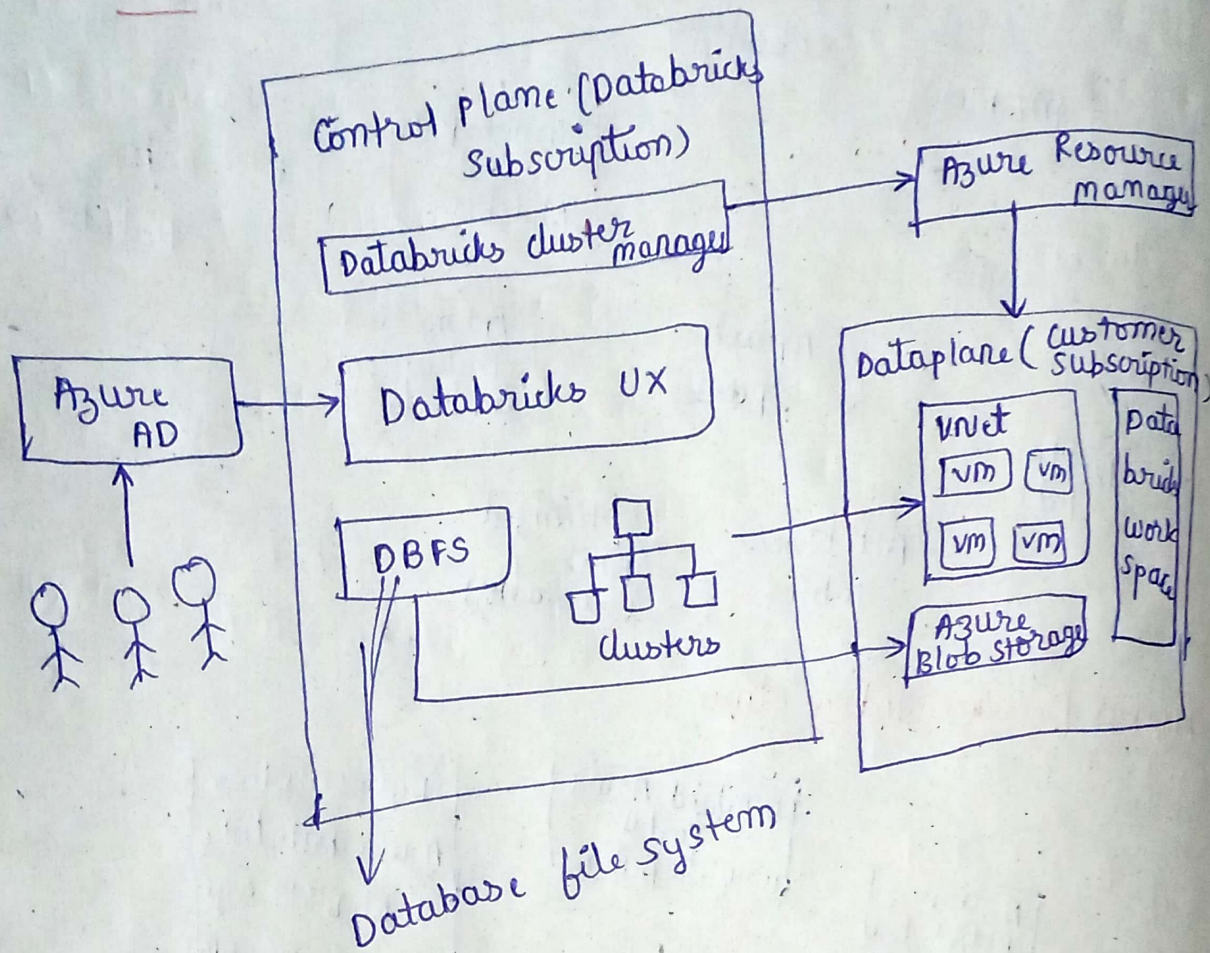 Control plane (Databricks
Subscription)
Databricks cluster
manager
Azure Resource
manager
Azure
AD
Databricks UX
Dataplane (Customer
Subscription)
VNet
vm vm
vm vm
Data
bricks
work
space
DBFS
clusters
Azure
Blob Storage
Database file system